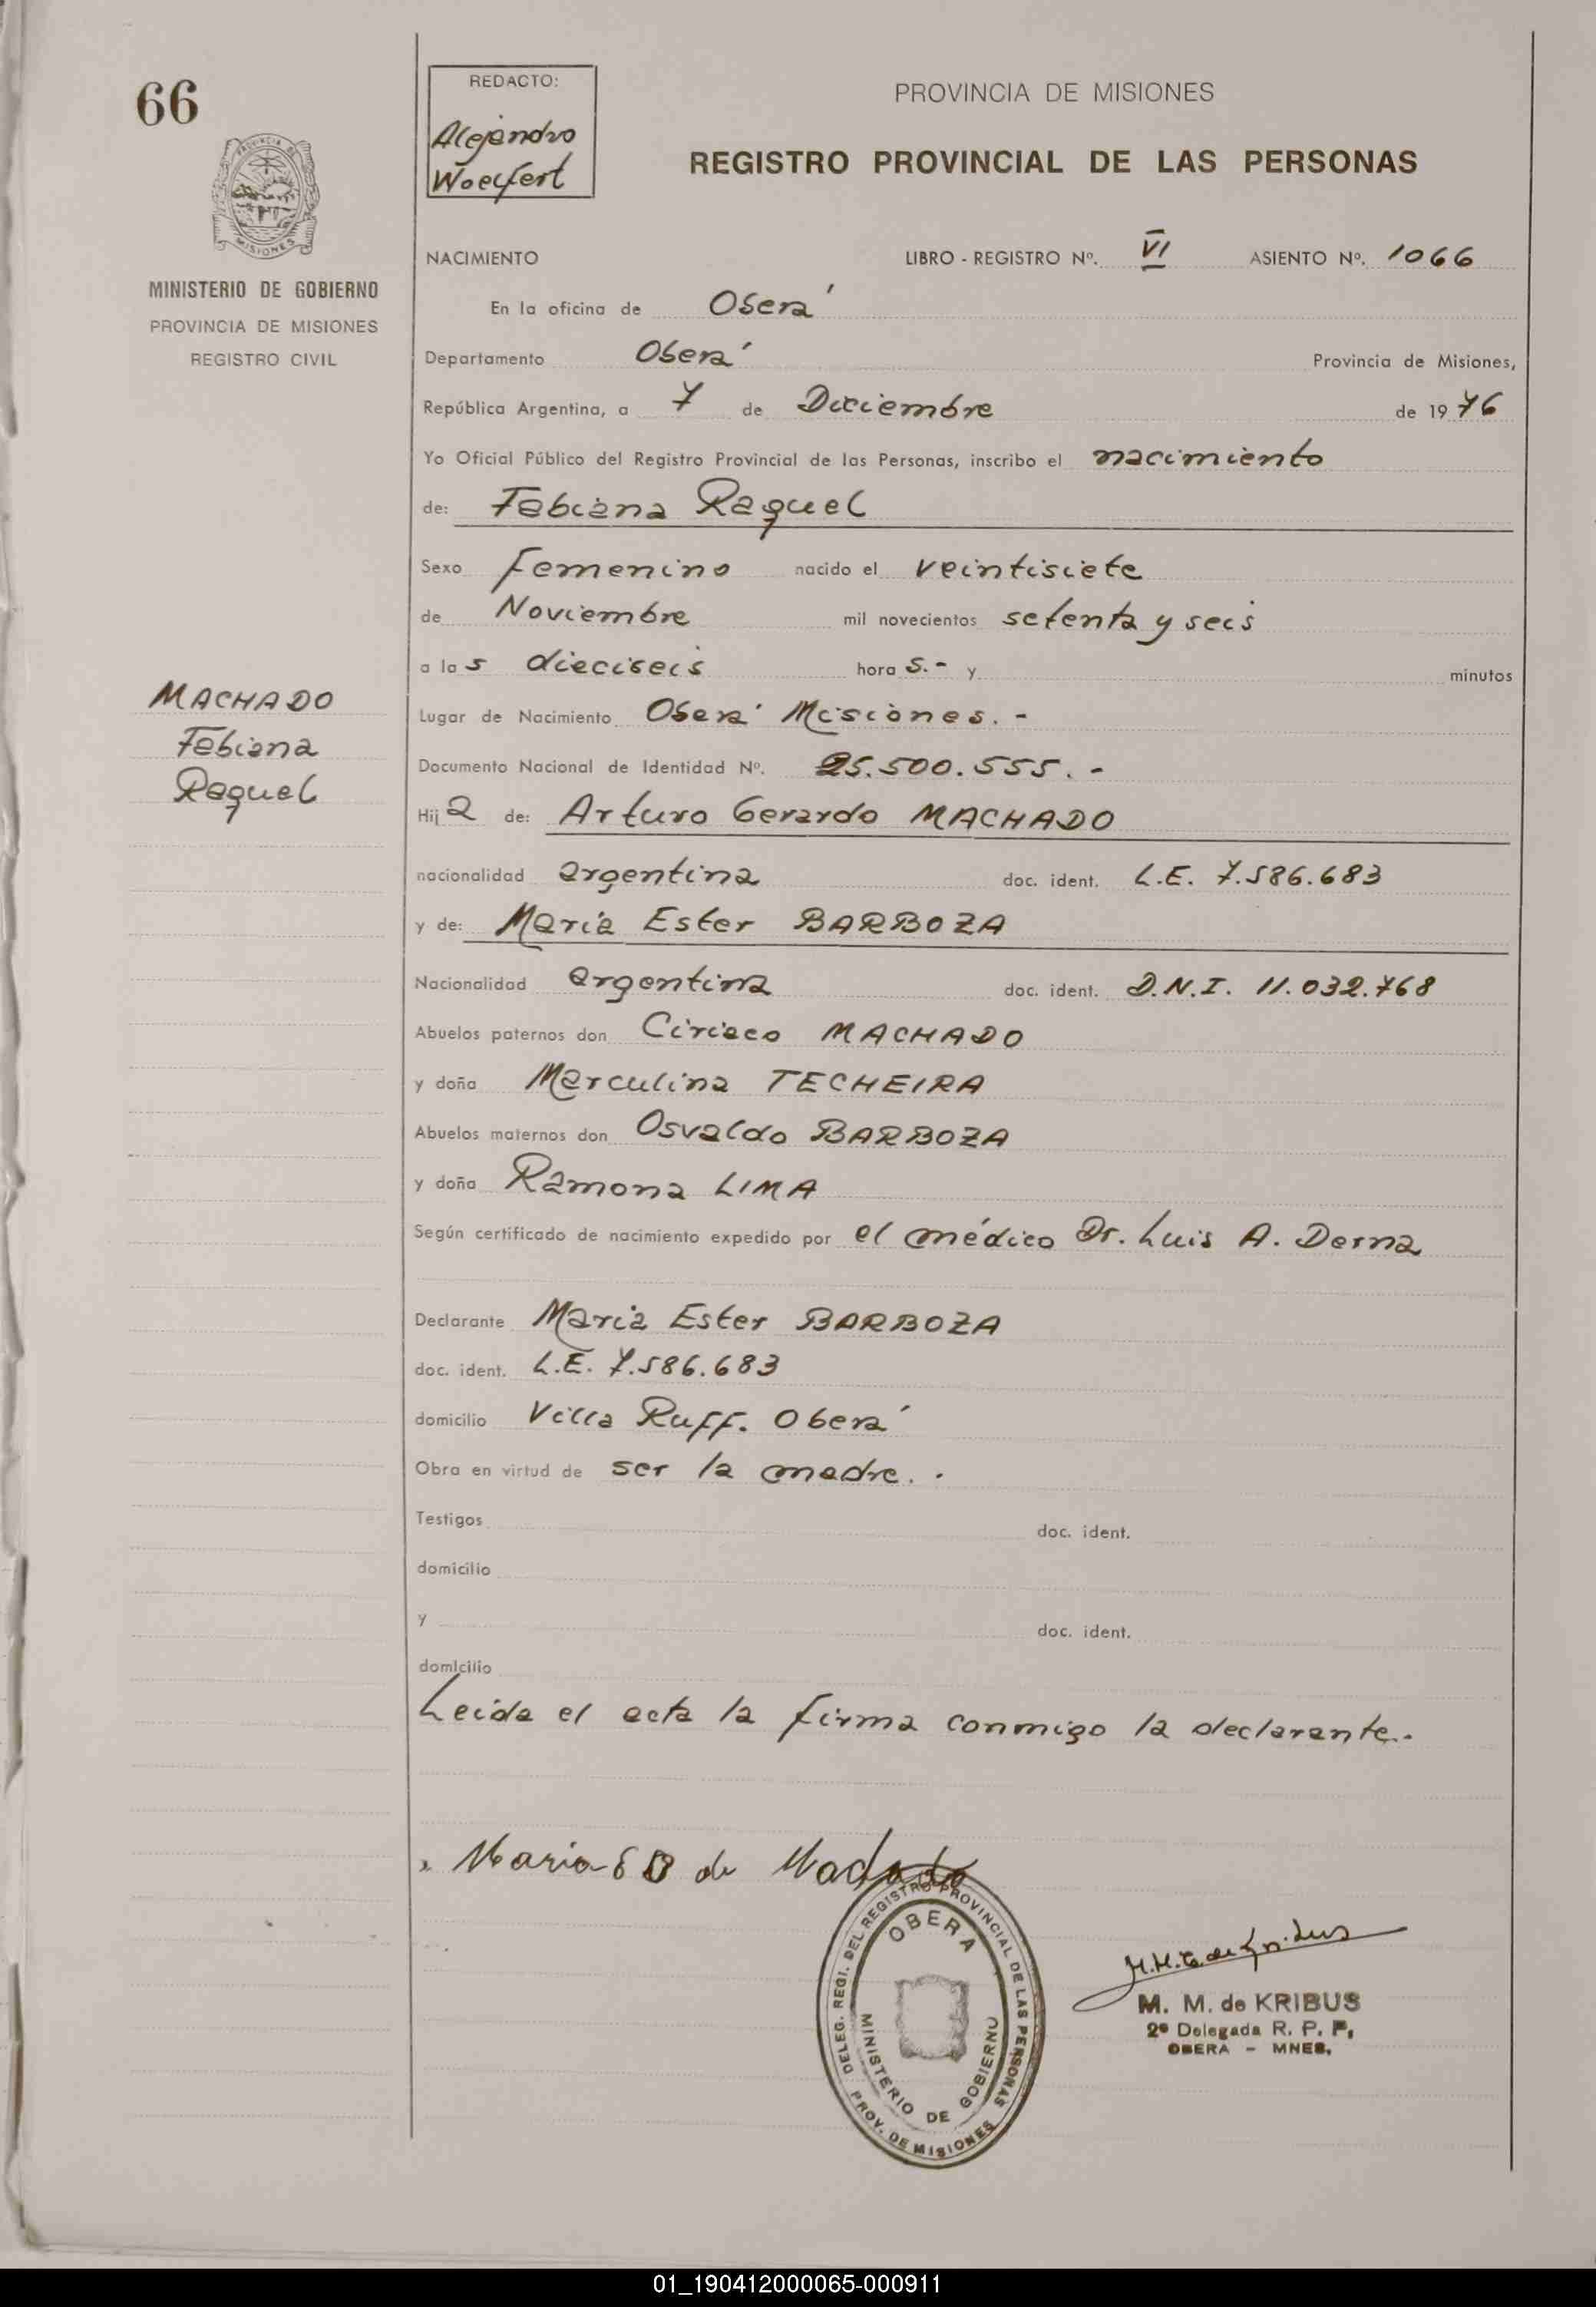 66
REDACTO:
Alejandro
Woelfert
PROVINCIA DE MISIONES
REGISTRO PROVINCIAL DE LAS PERSONAS
PROVINCIA DE
MISIONES
MINISTERIO DE GOBIERNO
PROVINCIA DE MISIONES
REGISTRO CIVIL
NACIMIENTO LIBRO - REGISTRO Nº. VI ASIENTO Nº. 1066
En la oficina de Oberá
Departamento Oberá Provincia de Misiones,
República Argentina, a 7 de Diciembre de 1976
Yo Oficial Público del Registro Provincial de las Personas, inscribo el nacimiento
de: Fabiana Raquel
Sexo femenino nacido el veintisiete
de Noviembre mil novecientos setenta y seis
a las dieciseis hora s.- y minutos
MACHADO
Fabiana
Raquel
Lugar de Nacimiento Oberá Misiones.-
Documento Nacional de Identidad Nº. 25.500.555.-
Hija de: Arturo Gerardo MACHADO
nacionalidad argentina doc. ident. L.E. 7.586.683
y de: María Ester BARBOZA
Nacionalidad argentina doc. ident. D.N.I. 11.032.768
Abuelos paternos don Ciriaco MACHADO
y doña Marculina TECHEIRA
Abuelos maternos don Osvaldo BARBOZA
y doña Ramona LIMA
Según certificado de nacimiento expedido por el médico Dr. Luis A. Derna
Declarante María Ester BARBOZA
doc. ident. L.E. 7.586.683
domicilio Villa Ruff. Oberá
Obra en virtud de ser la madre. .
Testigos doc. ident.
domicilio
y doc. ident.
domicilio
Leida el acta la firma conmigo la declarante.-
Maria E B de Machado
DELEG. REGI. DEL REGISTRO PROVINCIAL DE LAS PERSONAS
OBERA
MINISTERIO DE GOBIERNO
PROV. DE MISIONES
M. M. de KRIBUS
2ª Delegada R. P. P.
OBERA - MNES.
01_190412000065-000911